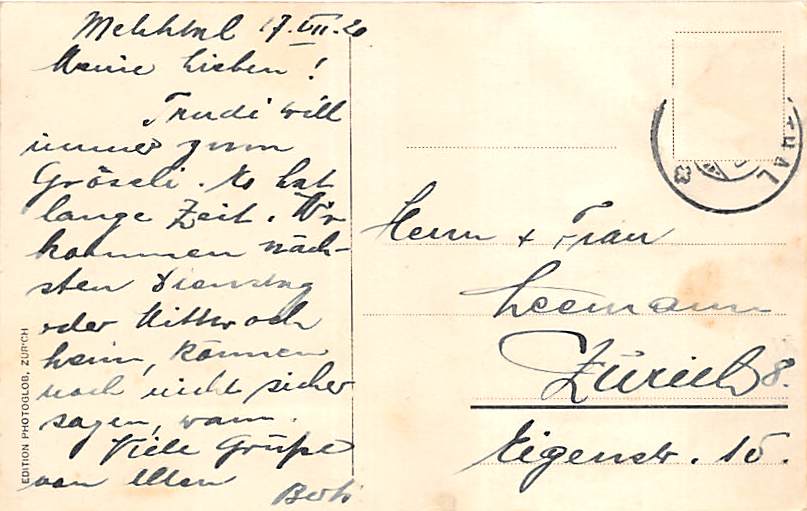 Melchtal 17. VII. 20
Meine Lieben!
Trudi will
immer zum
Gröseli. Es hat
lange Zeit. Wir
kommen näch-
sten Dienstag
oder Mittwoch
heim, können
noch nicht sicher
sagen, wann.
Viele Grüsse
von allen
EDITION PHOTOGLOB, ZÜRICH
Herrn + Frau
Leemann
Zürich 8.
Eigenstr. 15.